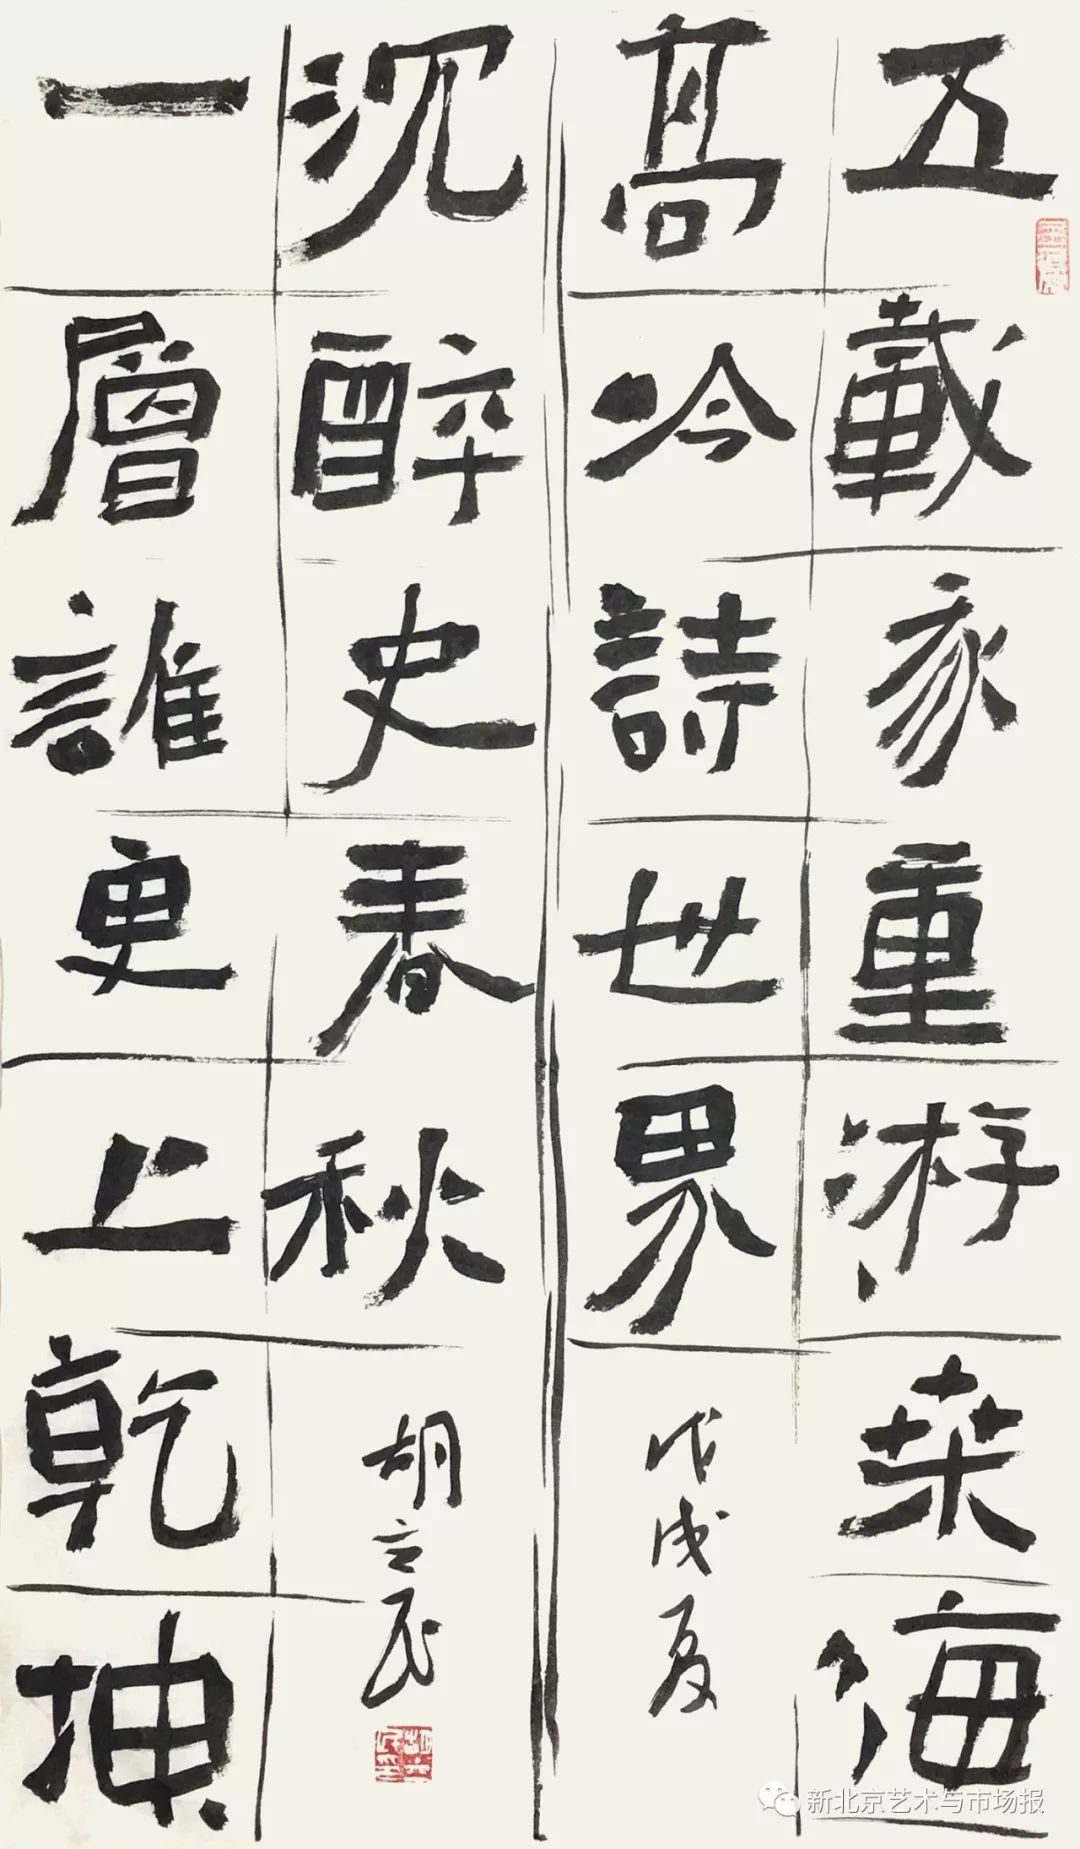 五載家重游桑海
高吟詩世界
戊戌夏
沉醉史春秋
胡立民
一層誰更上乾坤
新北京艺术与市场报